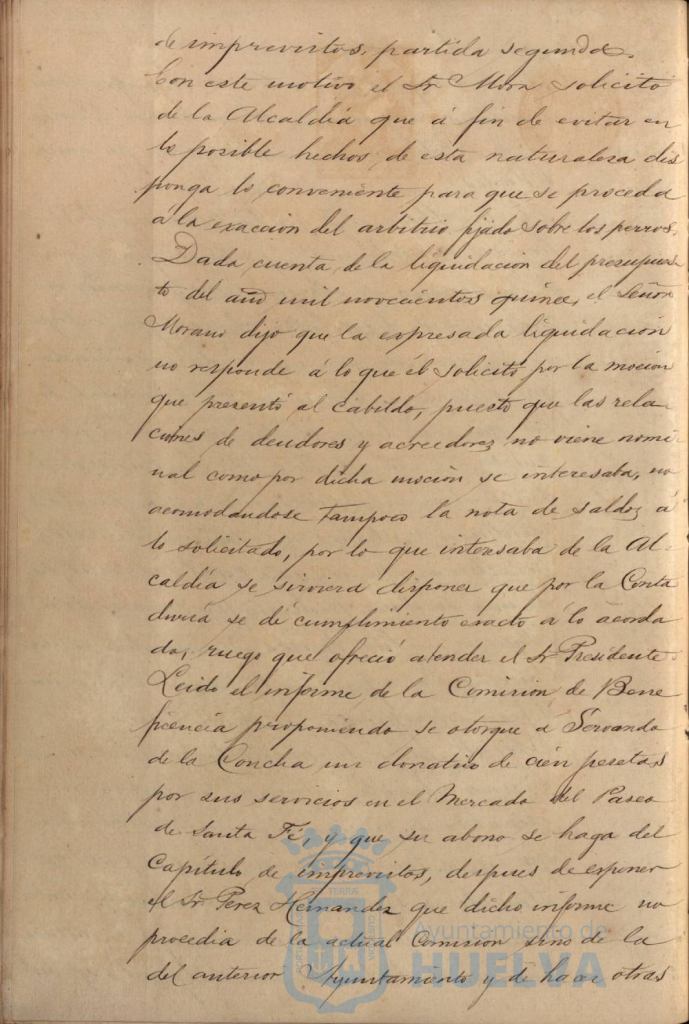 de imprevistos, partida segunda.
Con este motivo el Sr Mora solicitó
de la Alcaldía que á fin de evitar en
lo posible hechos de esta naturaleza dis
ponga lo conveniente para que se proceda
á la exaccion del arbitrio fijado sobre los perros.
Dada cuenta de la liquidacion del presupues
to del año mil novecientos quince, el Señor
Morano dijo que la expresada liquidación
no responde á lo que él solicitó por la moción
que presentó al Cabildo, puesto que las rela
ciones de deudores y acreedores no viene nomi
nal como por dicha moción se interesaba, no
acomodandose tampoco la nota de saldos a
lo solicitado, por lo que interesaba de la Al-
caldía se sirviera disponer que por la Conta
duria se dé cumplimiento exacto á lo acorda
do, ruego que ofreció atender el Sr Presidente.
Leido el informe de la Comision de Bene
ficencia proponiendo se otorgue á Servando
de la Concha un donativo de cien pesetas
por sus servicios en el Mercado del Paseo
de Santa Fé, y que su abono se haga del
Capítulo de imprevistos, despues de exponer
el Sr. Perez Hernandez que dicho informe no
procedia de la actual Comision sino de la
del anterior Ayuntamiento y de hacer otras
Ayuntamiento de
HUELVA